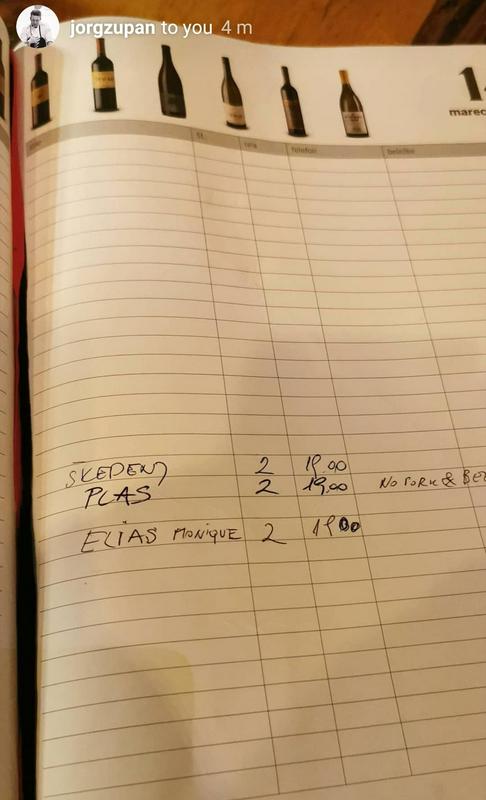 jorgzupan to you 4 m
marec
telefon
ŠKEDENJ 2 19.00
PLAS 2 19.00 NO PORK & BE
ELIAS MONIQUE 2 19 00